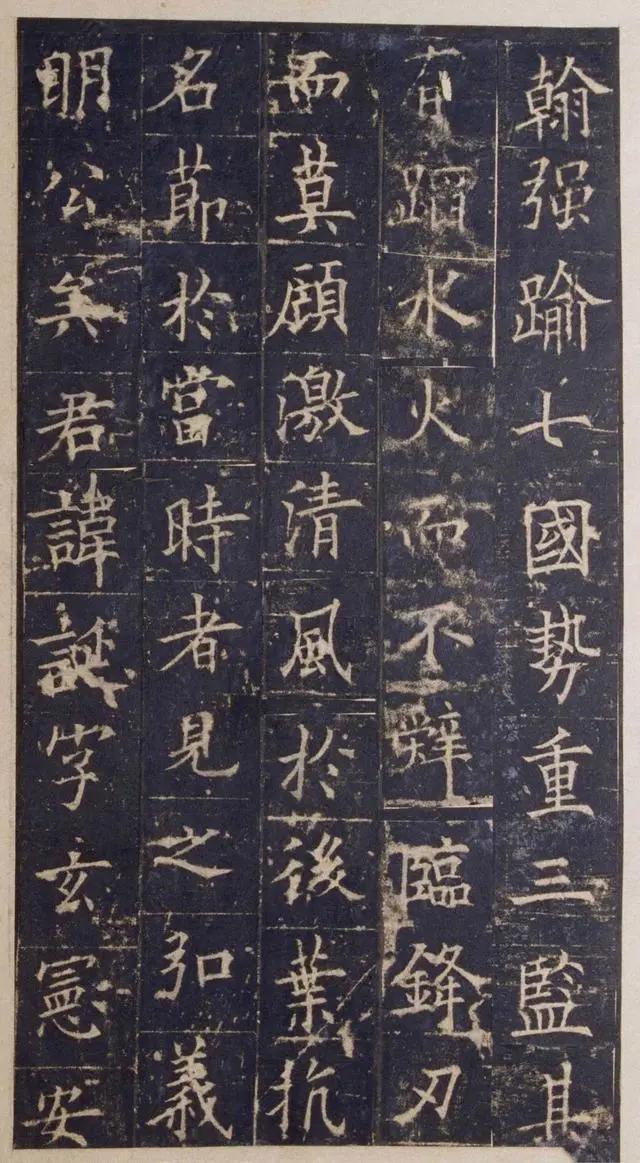 翰强踰七國勢重三監其
有蹈水火而不辭臨鋒刃
而莫顧激清風於後葉抗
名節於當時者見之弘義
明公矣君諱誕字玄憲安